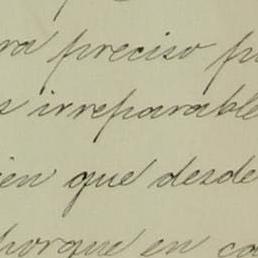 ra preciso p
s irreparable
ien que desde
porque en ca